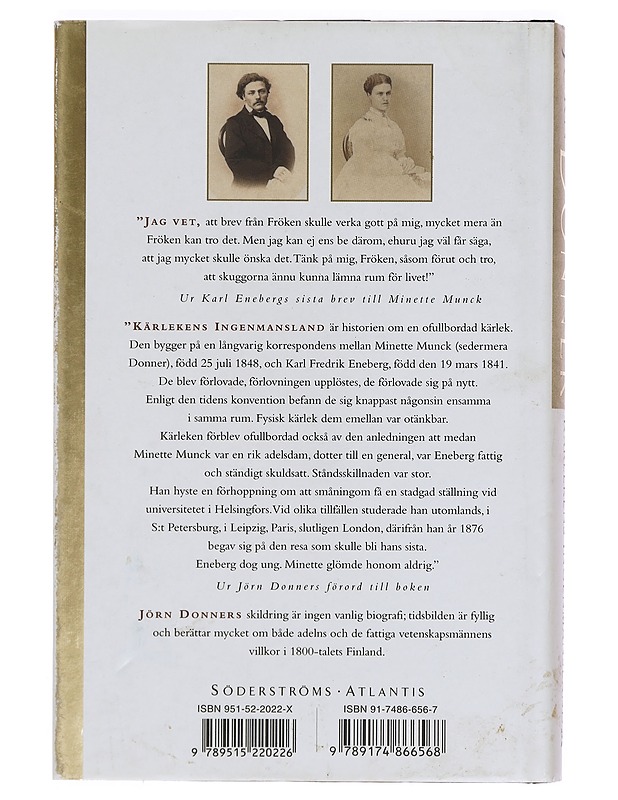 ”JAG VET, att brev från Fröken skulle verka gott på mig, mycket mera än
Fröken kan tro det. Men jag kan ej ens be därom, ehuru jag väl får säga,
att jag mycket skulle önska det. Tänk på mig, Fröken, såsom förut och tro,
att skuggorna ännu kunna lämna rum för livet!”
Ur Karl Enebergs sista brev till Minette Munck
”KÄRLEKENS INGENMANSLAND är historien om en ofullbordad kärlek.
Den bygger på en långvarig korrespondens mellan Minette Munck (sedermera
Donner), född 25 juli 1848, och Karl Fredrik Eneberg, född den 19 mars 1841.
De blev förlovade, förlovningen upplöstes, de förlovade sig på nytt.
Enligt den tidens konvention befann de sig knappast någonsin ensamma
i samma rum. Fysisk kärlek dem emellan var otänkbar.
Kärleken förblev ofullbordad också av den anledningen att medan
Minette Munck var en rik adelsdam, dotter till en general, var Eneberg fattig
och ständigt skuldsatt. Ståndsskillnaden var stor.
Han hyste en förhoppning om att småningom få en stadgad ställning vid
universitetet i Helsingfors. Vid olika tillfällen studerade han utomlands, i
S:t Petersburg, i Leipzig, Paris, slutligen London, därifrån han år 1876
begav sig på den resa som skulle bli hans sista.
Eneberg dog ung. Minette glömde honom aldrig.”
Ur Jörn Donners förord till boken
JÖRN DONNERS skildring är ingen vanlig biografi; tidsbilden är fyllig
och berättar mycket om både adelns och de fattiga vetenskapsmännens
villkor i 1800-talets Finland.
SÖDERSTRÖMS · ATLANTIS
ISBN 951-52-2022-X
ISBN 91-7486-656-7
9 789515 220226
9 789174 866568
DONNER